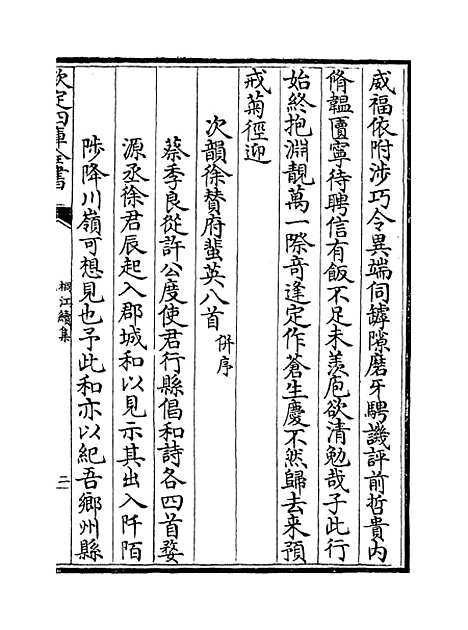 威福依附涉巧令異端伺罅隙磨牙騁譏評前哲貴内
脩韞匵寧待聘信有飯不足未羨庖欲清勉哉子此行
始終抱淵靚萬一際竒逢定作蒼生慶不然歸去來預
戒菊徑迎
次韻徐贊府蜚英八首 併序
蔡季良從許公度使君行縣倡和詩各四首婺
源丞徐君辰起入郡城和以見示其出入阡陌
陟降川嶺可想見也予此和亦以紀吾鄉州縣
欽定四庫全書
桐江續集
二